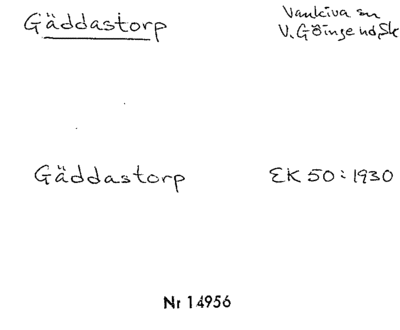 Gäddastorp
Vankiva sn
V. Göinge hd, Sk
Gäddastorp EK 50:1930
Nr 14956